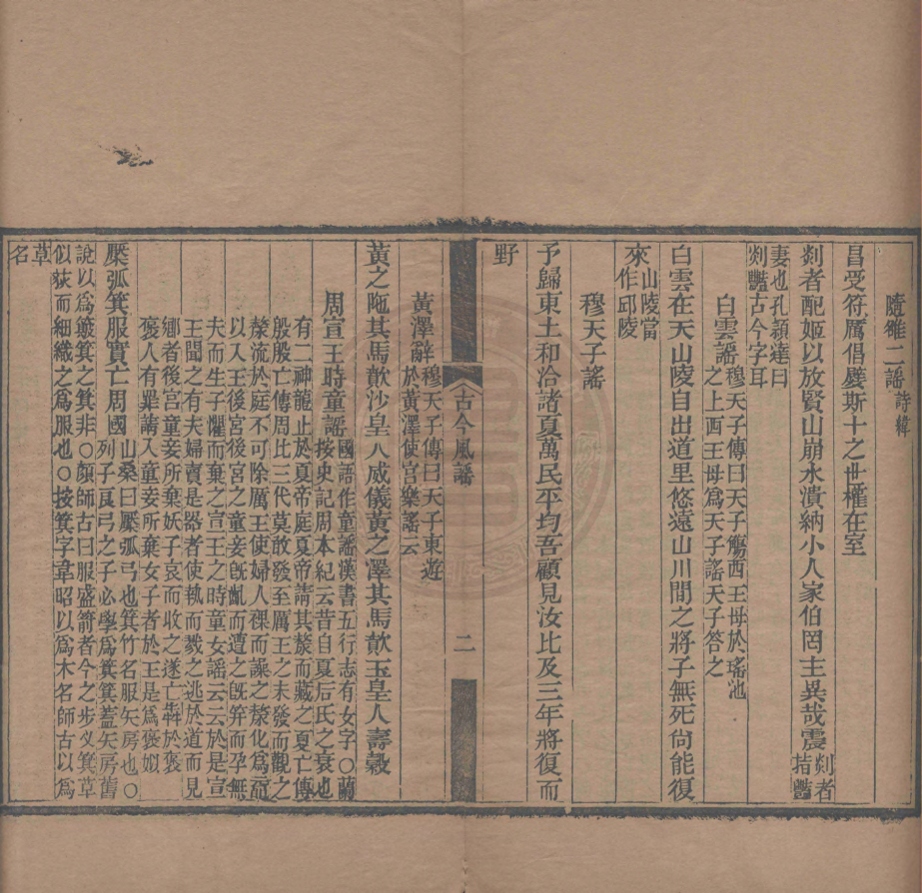 隨雒二謠詩緯
昌受符厲倡嬖斯十之世權在室
剡者配姬以放賢山崩水潰納小人家伯罔主異哉震剡者指豔
妻也孔頴達曰
剡豔古今字耳
白雲謠穆天子傳曰天子觴西王母於瑤池
之上西王母爲天子謠天子答之
白雲在天山陵自出道里悠遠山川間之將子無死尙能復
來山陵當作邱陵
穆天子謠
予歸東土和洽諸夏萬民平均吾顧見汝比及三年將復而
野
古今風謠 二
黃澤辭穆天子傳曰天子東遊
於黃澤使宮樂謠云
黃之陁其馬歕沙皇人威儀黃之澤其馬歕玉皇人壽穀
周宣王時童謠國語作童謠漢書五行志有女字○蘭
按史記周本紀云昔自夏后氏之衰也
有二神龍止於夏帝庭夏帝請其漦而藏之夏亡傳
殷殷亡傳周比三代莫敢發至厲王之末發而觀之
漦流於庭不可除厲王使婦人裸而譟之漦化爲黿
以入王後宮後宮之童妾旣齓而遭之旣笄而孕無
夫而生子懼而棄之宣王之時童女謠云云於是宣
王聞之有夫婦賣是器者使執而戮之逃於道而見
鄉者後宮童妾所棄妖子哀而收之遂亡犇於褒
褒人有辠請入童妾所棄女子者於王是爲褒姒
檿弧箕服實亡周國山桑曰檿弧弓也箕竹名服矢房也○
列子㫐弓之子必學爲箕箕蓋矢房舊
說以爲簸箕之箕非○顏師古曰服盛箭者今之步乂箕草
似荻而細織之爲服也○按箕字韋昭以爲木名師古以爲
草名